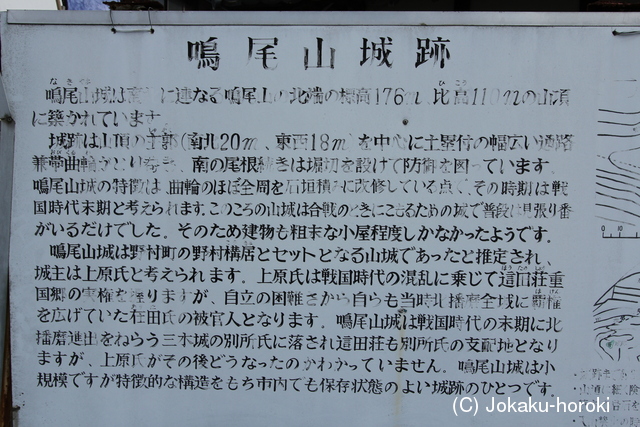 鳴尾山城跡
鳴尾山城は東に連なる鳴尾山の北端の標高176m、比高110mの山頂
に築かれています。
城跡は山頂の主郭(南北20m、東西18m)を中心に土塁付の幅広い通路
兼帯曲輪がとりまき、南の尾根続きは堀切を設けて防御を図っています。
鳴尾山城の特徴は、曲輪のほぼ全周を石垣積みに改修している点で、その時期は戦
国時代末期と考えられます。このころの山城は合戦のときにこもるための城で普段は見張り番
がいるだけでした。そのため建物も粗末な小屋程度しかなかったようです。
鳴尾山城は野村町の野村構居とセットとなる山城であったと推定され、
城主は上原氏と考えられます。上原氏は戦国時代の混乱に乗じて這田荘重
国郷の実権を握りますが、自立の困難さから自らも当時北播磨全域に覇権
を広げていた在田氏の被官人となります。鳴尾山城は戦国時代の末期に北
播磨進出をねらう三木城の別所氏に落され這田荘も別所氏の支配地となり
ますが、上原氏がその後どうなったのかわかっていません。鳴尾山城は小
規模ですが特徴的な構造をもち市内でも保存状態のよい城跡のひとつです。
(C) Jokaku-horoki